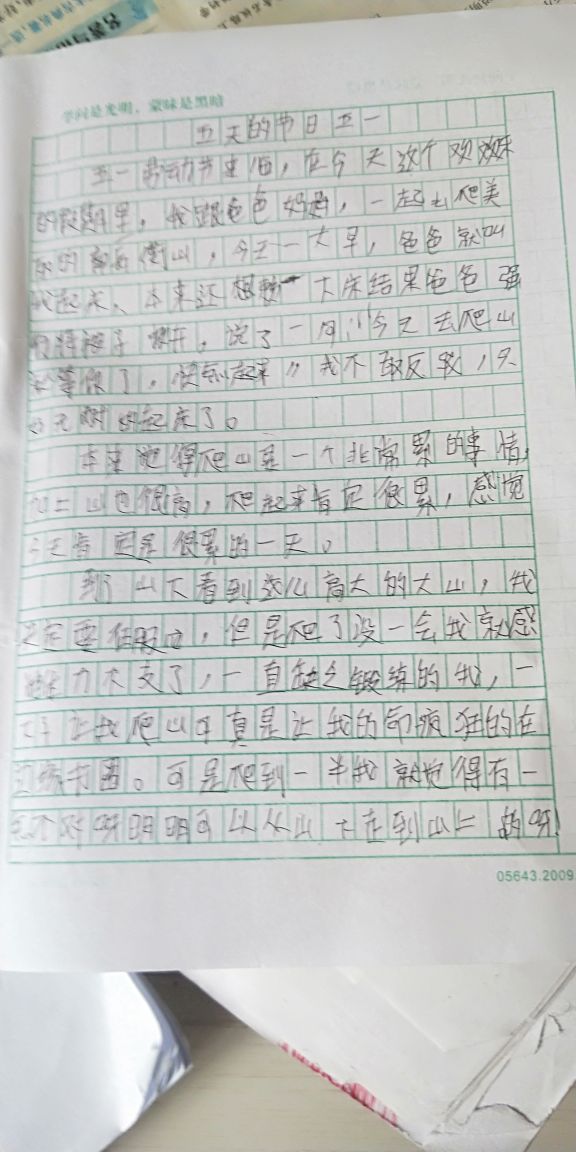 学问是光明，蒙昧是黑暗
五天的节日五一
五一劳动节来临，在今天这个欢欢乐
的假期里，我跟爸爸妈妈，一起去爬美
丽的南岳衡山，今天一大早，爸爸就叫
我起床、本来还想赖一下床结果爸爸强
行将被子掀开，说了一句“今天去爬山
等你了，快点起来”我不敢反驳，只
好无耐的起床了。
本来觉得爬山是一个非常累的事情，
加上山也很高，爬起来肯定很累，感觉
今天肯定是很累的一天。
到了山下看到这么高大的大山，我
决定要征服它，但是爬了没一会我就感
觉体力不支了，一直缺乏锻练的我，一
下子让我爬山可真是让我的命疯狂的在
边缘书画。可是爬到一半我就觉得有一
点不对呀明明可以从山下走到山上的呀！
05643.2009